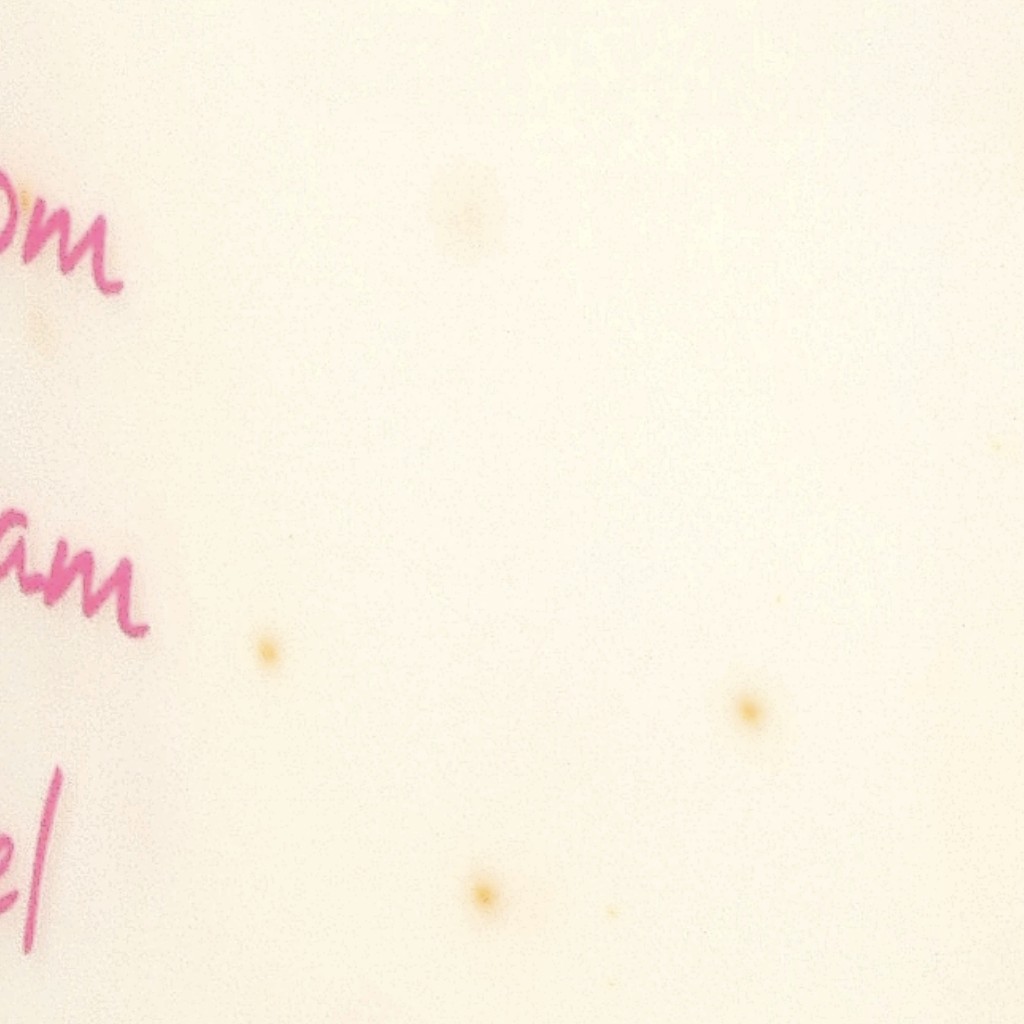 om
am
el